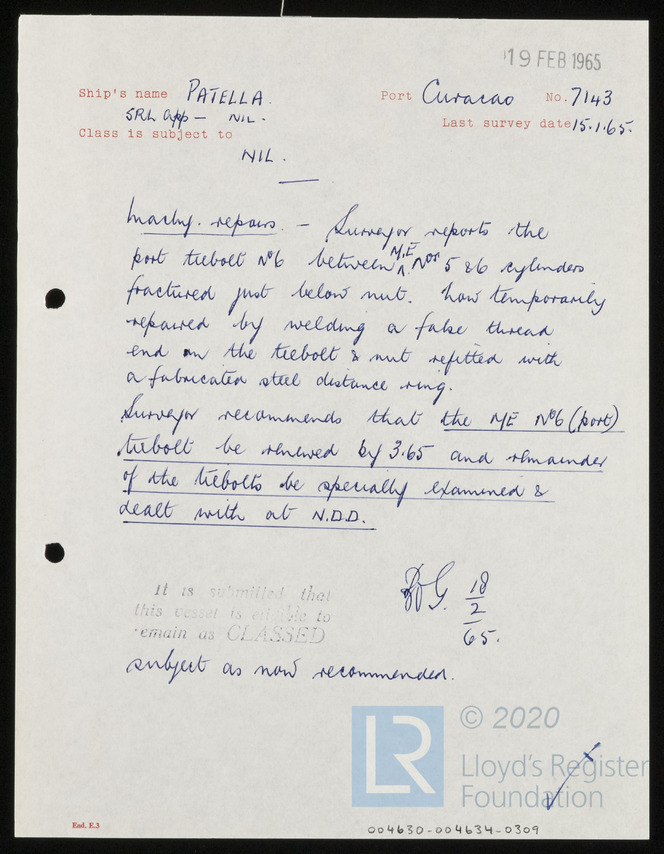 19 FEB 1965
Ship's name PATELLA. Port Curacao No. 7143
SRL app — NIL.
Class is subject to Last survey date 15.1.65.
NIL.
Machy. repairs. — Surveyor reports the
port tiebolt Nº6 between M.E. Nos 5 & 6 cylinders
fractured just below nut. Now temporarily
repaired by welding a false thread
end on the tiebolt & nut refitted with
a fabricated steel distance ring.
Surveyor recommends that the ME Nº6 (port)
tiebolt be renewed by 3.65 and remainder
of the tiebolts be specially examined &
dealt with at N.D.D.
It is submitted that
this vessel is eligible to
remain as CLASSED
18
2
65.
subject as now recommended.
© 2020
LR
Lloyd's Register
Foundation
End. E.3
004630-004634-0309